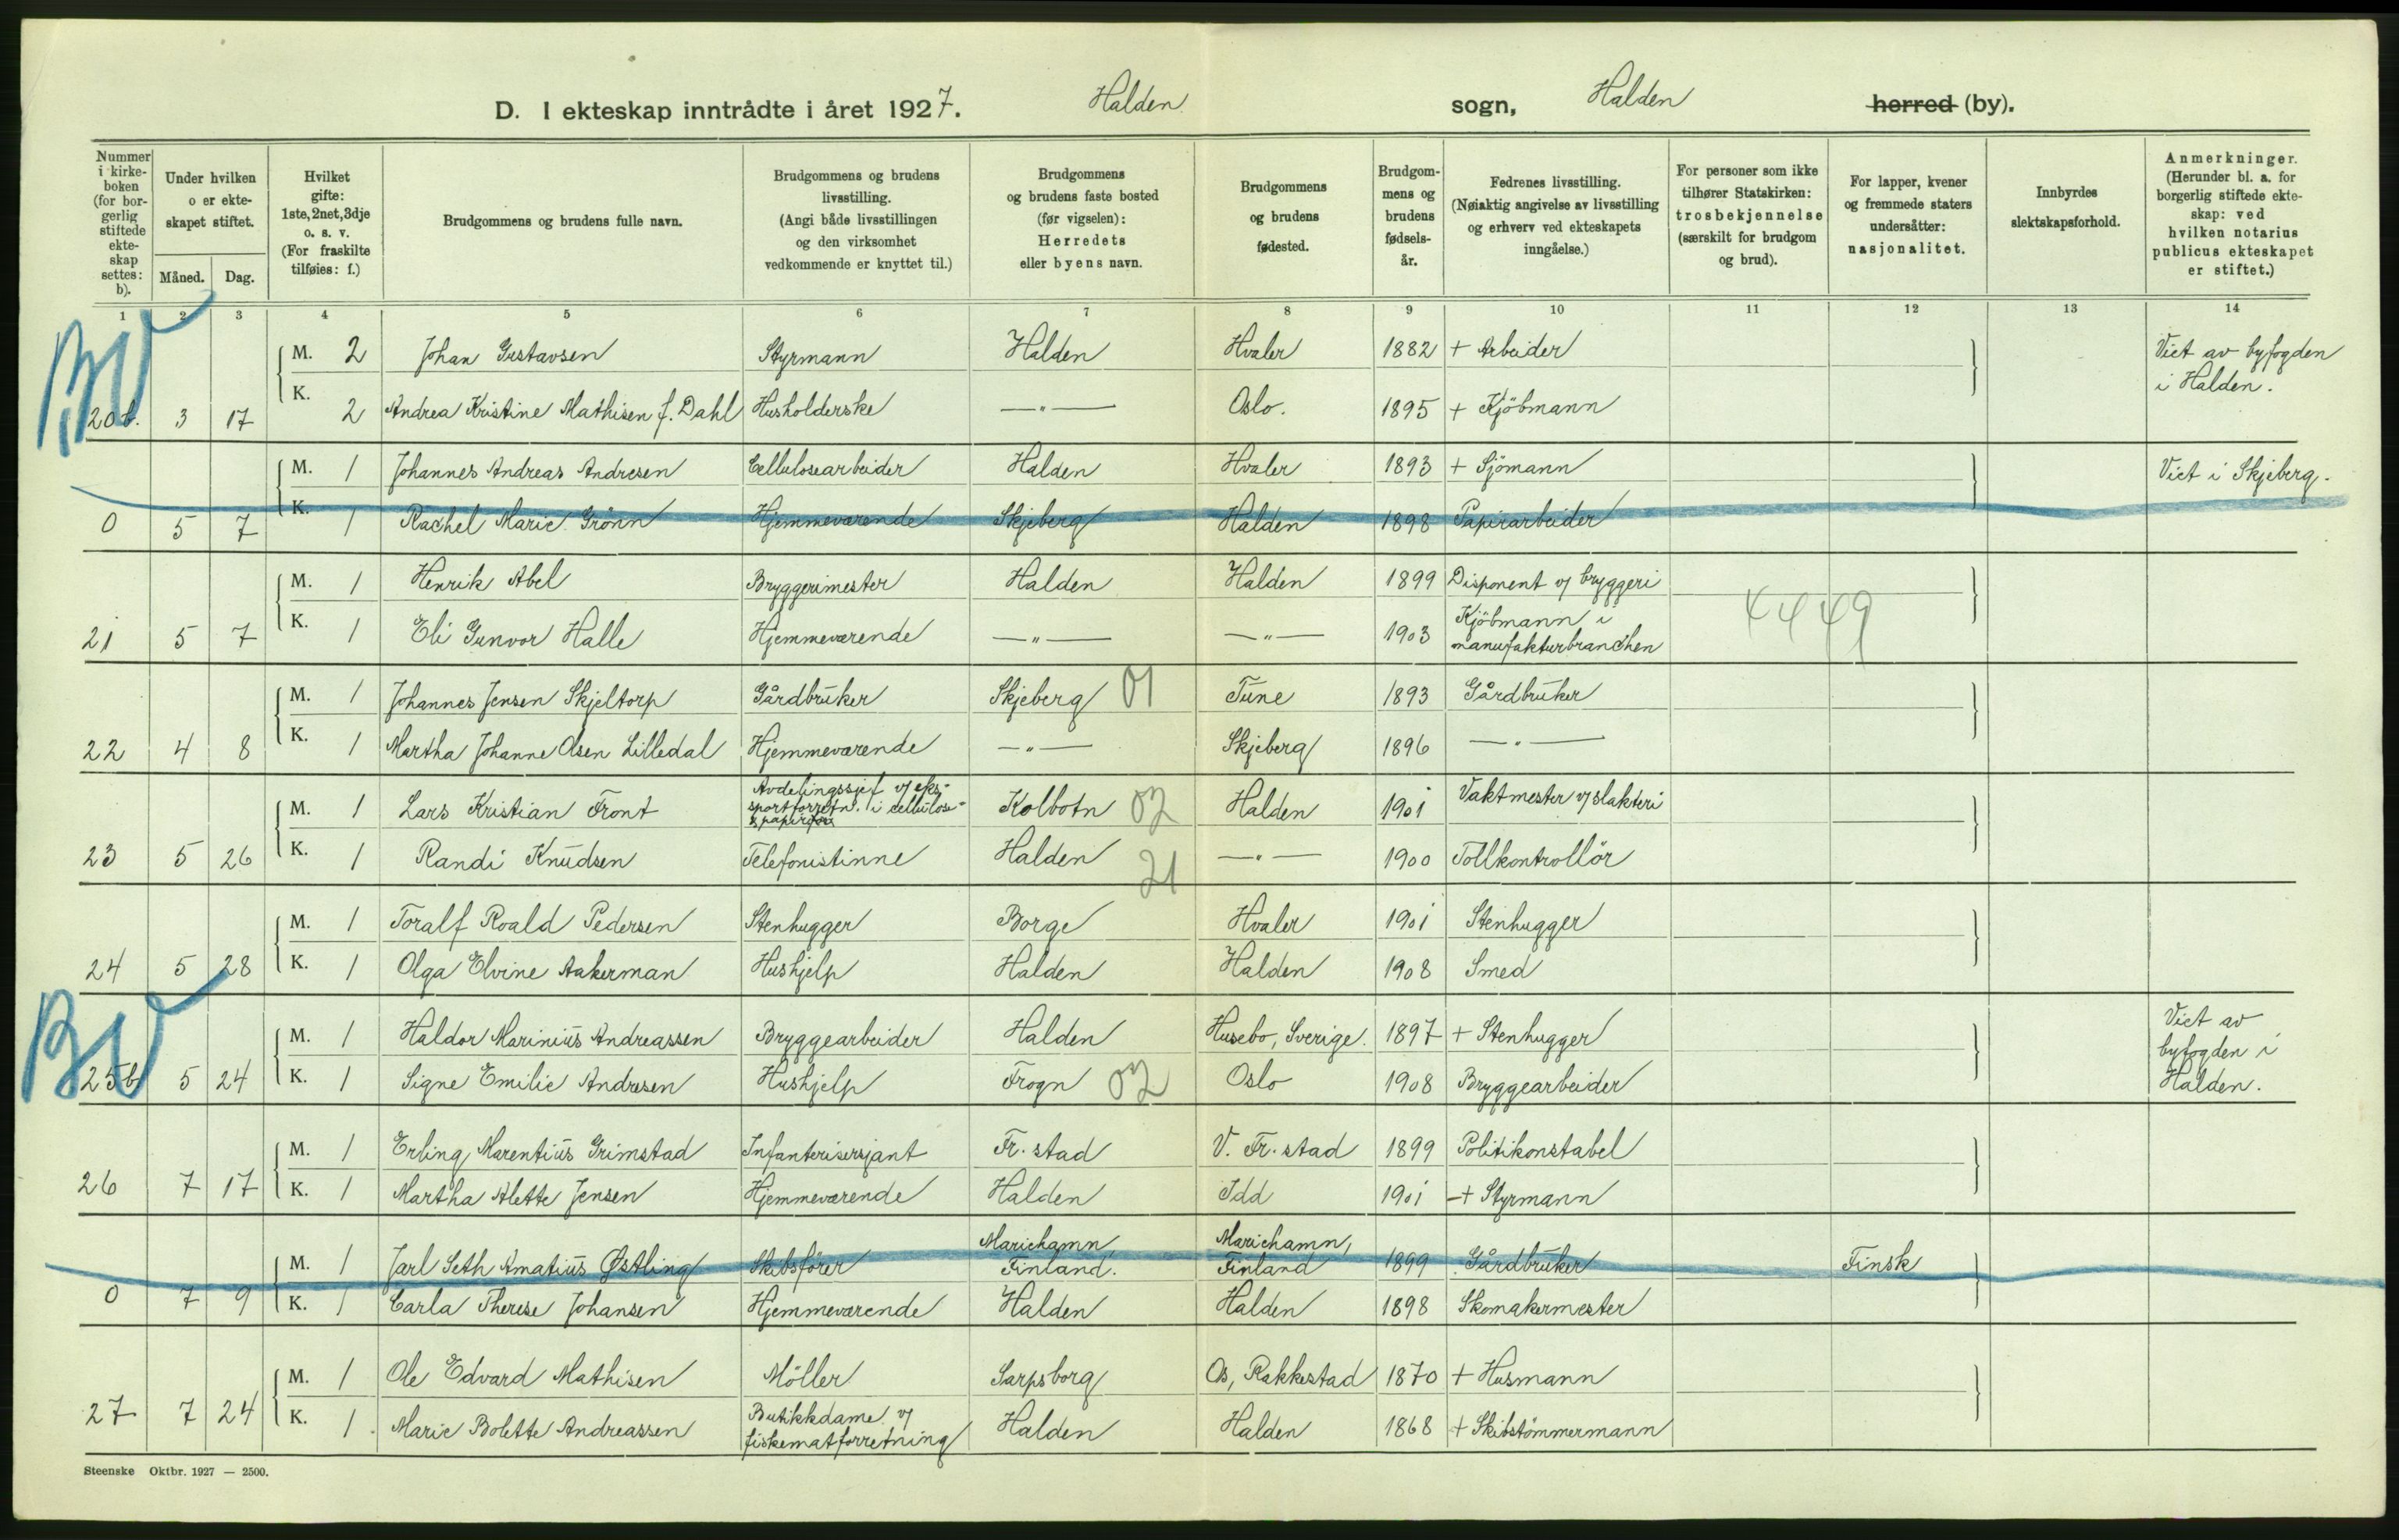 D. I ekteskap inntrådte i året 1927. Halden sogn, Halden herred (by).
Nummer i kirke-boken (for bor-gerlig stiftede ekte-skap settes: b).
Under hvilken o er ekte-skapet stiftet.
Måned. Dag.
Hvilket gifte: 1ste, 2net, 3dje o. s. v. (For fraskilte tilføies: f.)
Brudgommens og brudens fulle navn.
Brudgommens og brudens livsstilling. (Angi både livsstillingen og den virksomhet vedkommende er knyttet til.)
Brudgommens og brudens faste bosted (før vigselen): Herredets eller byens navn.
Brudgommens og brudens fødested.
Brudgom-mens og brudens fødsels-år.
Fedrenes livsstilling. (Nøiaktig angivelse av livsstilling og erhverv ved ekteskapets inngåelse.)
For personer som ikke tilhører Statskirken: trosbekjennelse (særskilt for brudgom og brud).
For lapper, kvener og fremmede staters undersåtter: nasjonalitet.
Innbyrdes slektskapsforhold.
Anmerkninger. (Herunder bl. a. for borgerlig stiftede ekte-skap: ved hvilken notarius publicus ekteskapet er stiftet.)
1 2 3 4 5 6 7 8 9 10 11 12 13 14
BV
M. 2 Johan Gustavsen Styrmann Halden Hvaler 1882 + Arbeider Viet av byfogden
i Halden.
20b. 3 17 K. 2 Andrea Kristine Mathisen f. Dahl Husholderske —"— Oslo. 1895 + Kjöbmann
M. 1 Johannes Andreas Andresen Cellulosearbeider Halden Hvaler 1893 + Sjömann Viet i Skjeberg.
0 5 7 K. 1 Rachel Marie Grönn Hjemmeværende Skjeberg Halden 1898 Papirarbeider
M. 1 Henrik Abel Bryggerimester Halden Halden 1899 Disponent v/ bryggeri
21 5 7 K. 1 Eli Gunvor Halle Hjemmeværende —"— —"— 1903 Kjöbmann i
manufakturbranchen
4449
M. 1 Johannes Jensen Skjeltorp Gårdbruker Skjeberg 01 Tune 1893 Gårdbruker
22 4 8 K. 1 Martha Johanne Olsen Lilledal Hjemmeværende —"— Skjeberg 1896 —"—
M. 1 Lars Kristian Front Avdelingssjef v/ eks-
sportforretn. i cellulose-
& papir Kolbotn 02 Halden 1901 Vaktmester v/ slakteri
23 5 26 K. 1 Randi Knudsen Telefonistinne Halden 21 —"— 1900 Tollkontrollör
M. 1 Toralf Roald Pedersen Stenhugger Borge Hvaler 1901 Stenhugger
24 5 28 K. 1 Olga Elvine Aakerman Hushjelp Halden Halden 1908 Smed
BV
M. 1 Haldor Marinius Andreassen Bryggearbeider Halden Husebo, Sverige. 1897 + Stenhugger Viet av
byfogden i
Halden.
25b 5 24 K. 1 Signe Emilie Andresen Hushjelp Frogn 02 Oslo 1908 Bryggearbeider
M. 1 Erling Marentius Grimstad Infanterisersjant Fr. stad V. Fr. stad 1899 Politikonstabel
26 7 17 K. 1 Martha Alette Jensen Hjemmeværende Halden Idd 1901 + Styrmann
M. 1 Jarl Seth Amatius Østling Skibsförer Mariehamn,
Finland. Mariehamn,
Finland 1899 Gårdbruker Finsk
0 7 9 K. 1 Carla Therese Johansen Hjemmeværende Halden Halden 1898 Skomakermester
M. 1 Ole Edvard Mathisen Möller Sarpsborg Os, Rakkestad 1870 + Husmann
27 7 24 K. 1 Marie Bolette Andreassen Butikkdame v/
fiskematforretning Halden Halden 1868 + Skibstömmermann
Steenske Oktbr. 1927 — 2500.